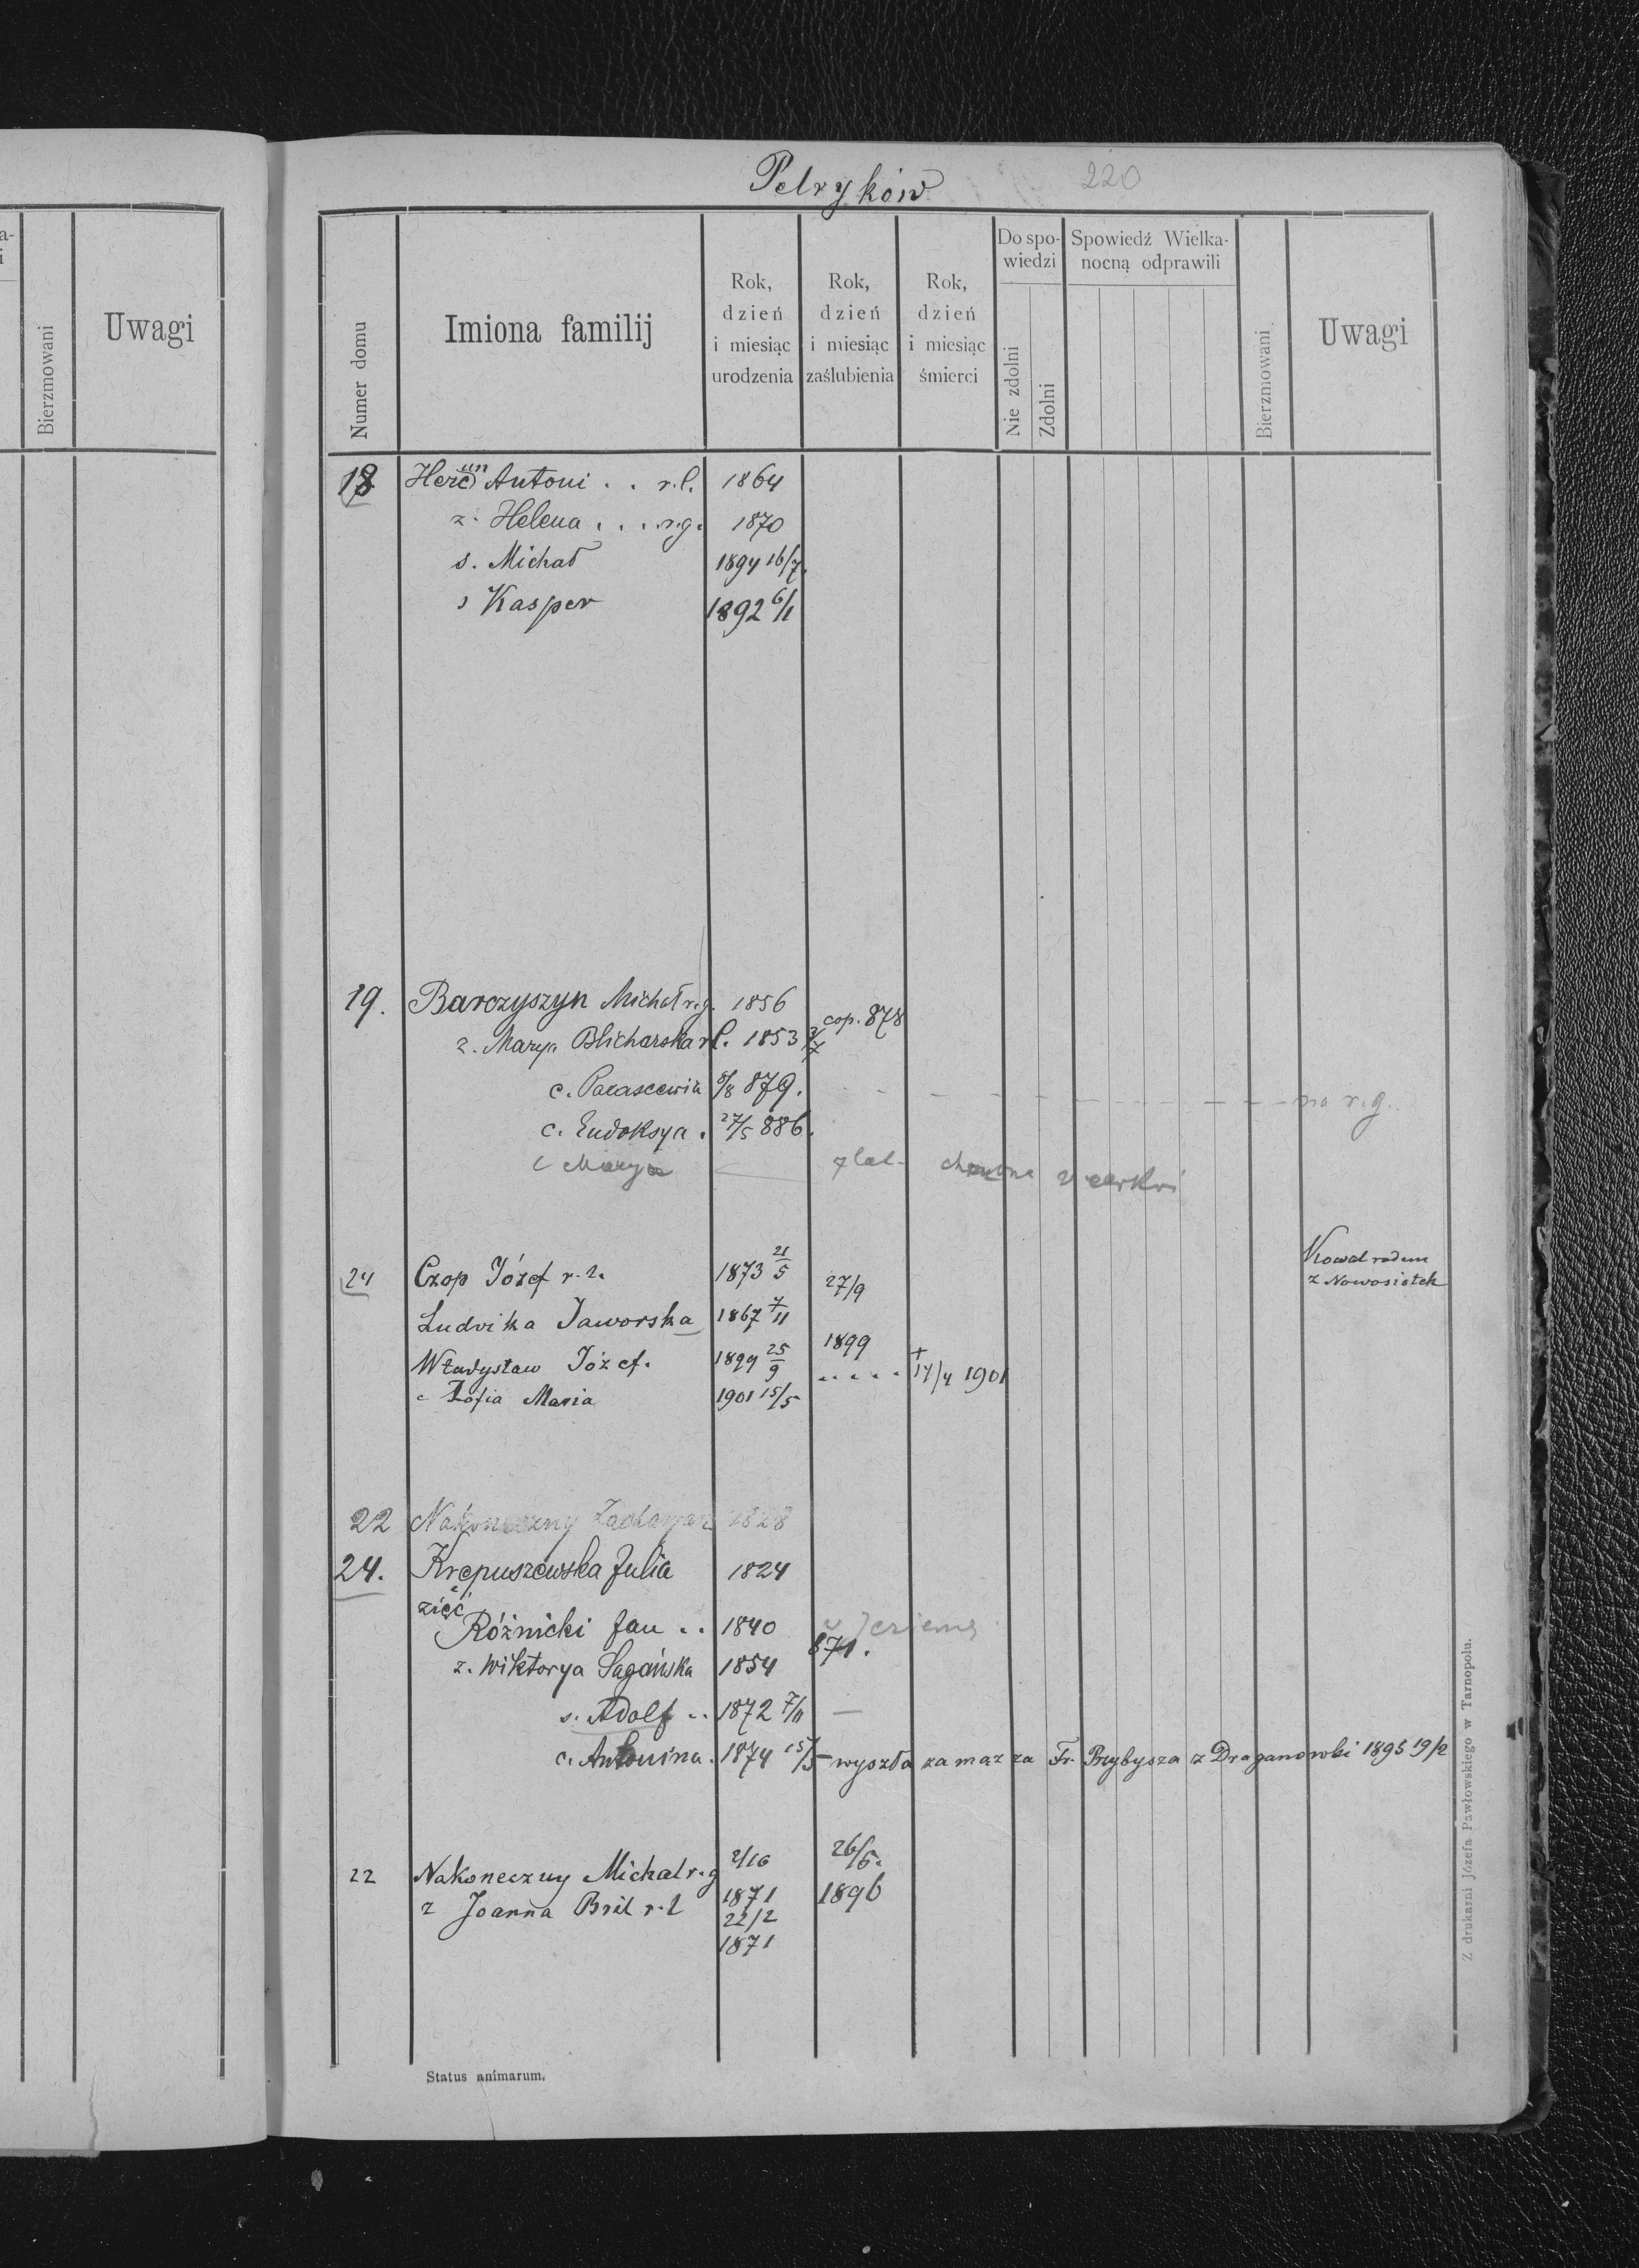 Petryków 220
a-
i
Bierzmowani
Uwagi
Numer domu
Imiona familij
Rok, dzień i miesiąc urodzenia
Rok, dzień i miesiąc zaślubienia
Rok, dzień i miesiąc śmierci
Do spo-wiedzi
Nie zdolni
Zdolni
Spowiedź Wielka-nocną odprawili
Bierzmowani.
Uwagi
18 Antoni . . r.l. 1864
ż. Helena . . . r.g. 1870
s. Michał 1894 16/7.
s Kasper 1892 6/1
19. Barczyszyn Michał r.g. 1856
ż. Marya Blicharska r.l. 1853 2/7 cop. 878
c. Parascewia 5/8 879. - - - - - - - - na r.g.
c. Eudoksya . 27/5 886.
c Marya 7 lat - chrzczona z cerkwi
Kowal rodem
z Nowosiołek
21 Czop Józef r. ł. 1873 21/5 27/9
Ludvika Jaworska 1867 7/11
1899
Władysław Józef. 1899 25/9 . . . . . + 17/4 1901
c Zofia Maria 1901 15/5
22 Nakoneczny Zacharyasz 1828
24. Krepuszewska Julia 1824
zięć
Różnicki Jan .. 1840
871.
ż. Wiktorya Sagańska 1854
s. Adolf .. 1872 7/11 —
c. Antonina. 1874 15/5 - wyszła za mąż za Fr. Przybysza z Draganowki 1895 19/2
22 Nakoneczny Michał r.g 2/10 1871 26/5. 1896
z Joanna Bril r.ł 22/2 1871
Status animarum.
Z drukarni Józefa Pawłowskiego w Tarnopolu.